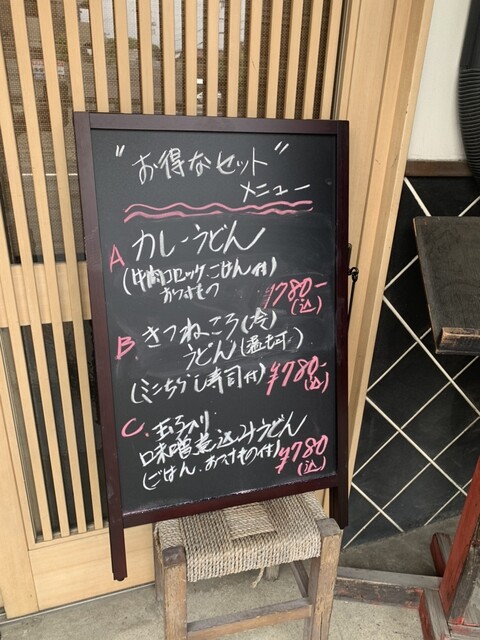 "お得なセット"
メニュー
A カレーうどん
(牛肉コロッケ.ごはん付)
おつけもの
¥780-
(込)
B. きつねころ(冷)
うどん(温も可)
(ミニちらし寿司付) ¥780-
(込)
C. 玉子入り
味噌煮込みうどん
(ごはん.おつけもの付) ¥780
(込)